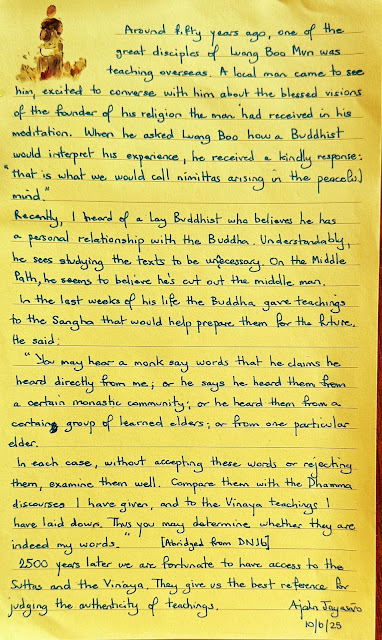 Around fifty years ago, one of the
great disciples of Luang Boo Mun was
teaching overseas. A local man came to see
him, excited to converse with him about the blessed visions
of the founder of his religion the man had received in his
meditation. When he asked Luang Boo how a Buddhist
would interpret his experience, he received a kindly response:
"that is what we would call nimittas arising in the peaceful
mind."
Recently, I heard of a Lay Buddhist who believes he has
a personal relationship with the Buddha. Understandably,
he sees studying the texts to be unnecessary. On the Middle
Path, he seems to believe he's cut out the middle man.
In the last weeks of his life the Buddha gave teachings
to the Sangha that would help prepare them for the future.
He said:
"You may hear a monk say words that he claims he
heard directly from me; or he says he heard them from
a certain monastic community; or he heard them from a
certain group of learned elders; or from one particular
elder.
In each case, without accepting these words or rejecting
them, examine them well. Compare them with the Dhamma
discourses I have given, and to the Vinaya teachings I
have laid down. Thus you may determine whether they are
indeed my words." [Abridged from DN16]
2500 years later we are fortunate to have access to the
Suttas and the Vinaya. They give us the best reference for
judging the authenticity of teachings. Ajahn Jayasaro
10/6/25